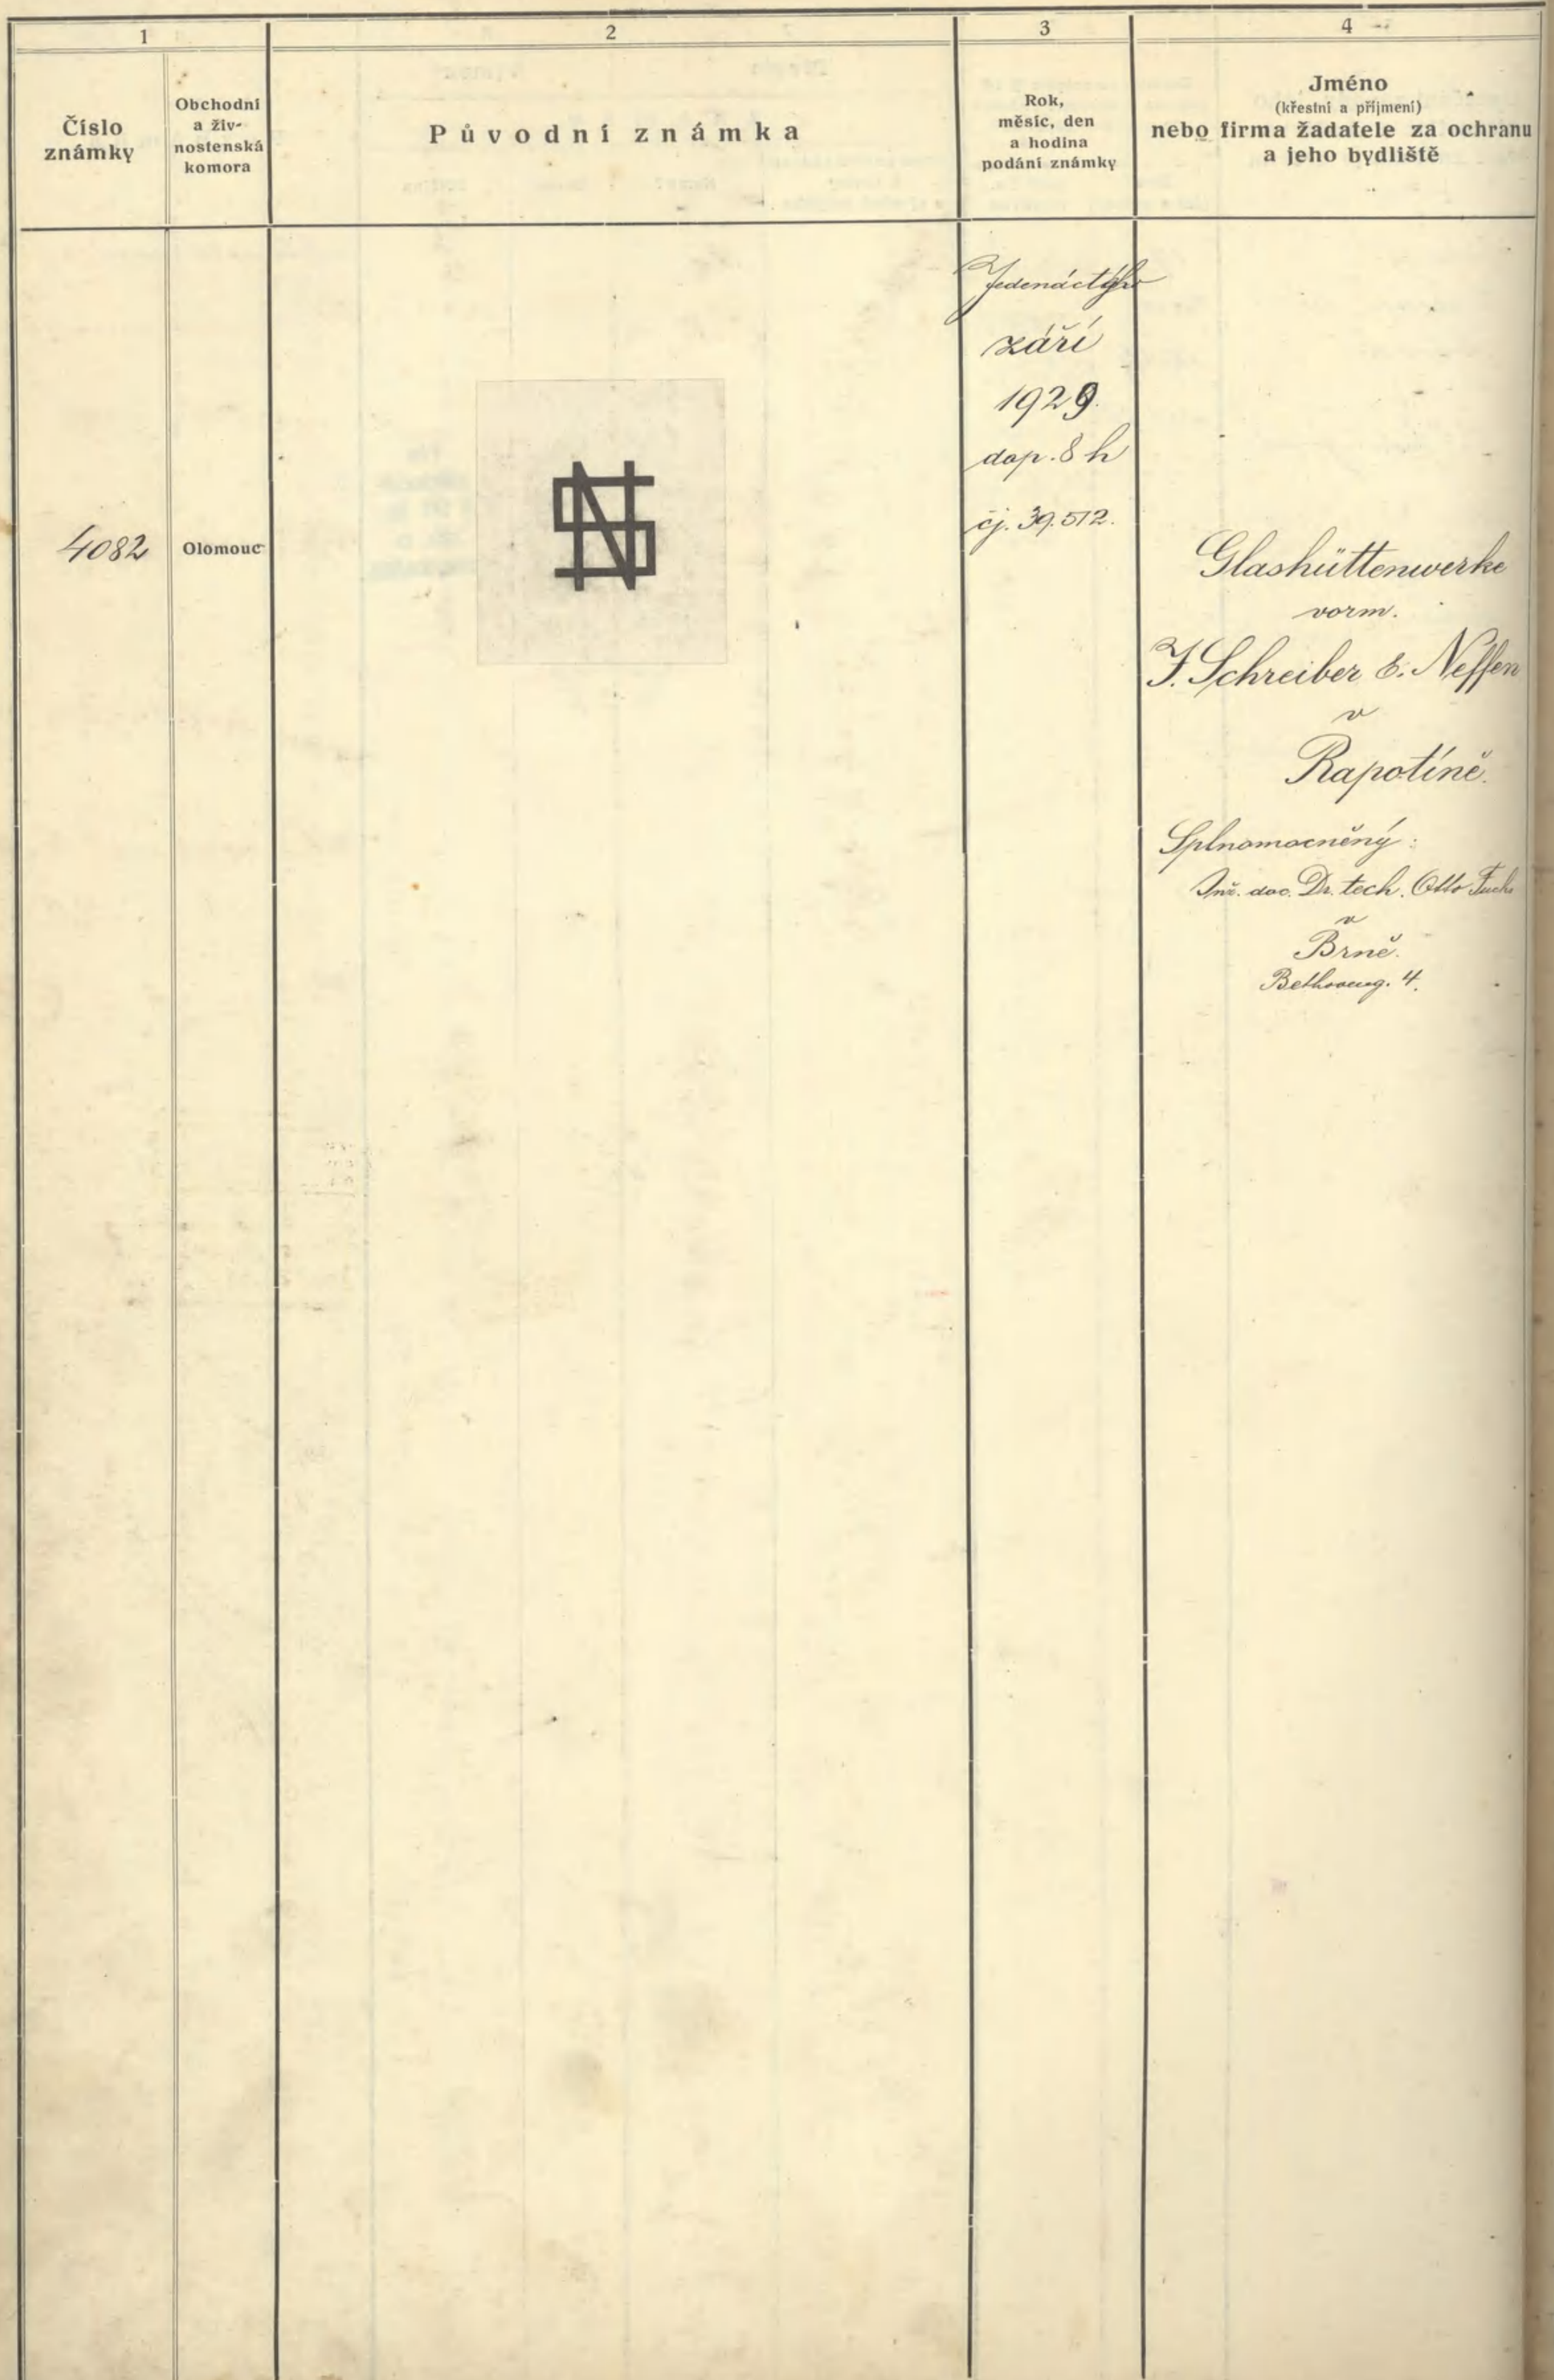 1
2
3
4
Číslo
známky
Obchodní
a živ-
nostenská
komora
Původní známka
Rok,
měsíc, den
a hodina
podání známky
Jméno
(křestní a příjmení)
nebo firma žadatele za ochranu
a jeho bydliště
4082
Olomouc
SN
Jedenáctého
září
1929.
dop. 8 h
čj. 39.512.
Glashüttenwerke
vorm.
J. Schreiber & Neffen
v
Rapotíně.
Splnomocněný:
Inž. doc. Dr. tech. Otto Fuchs
v
Brně.
4.